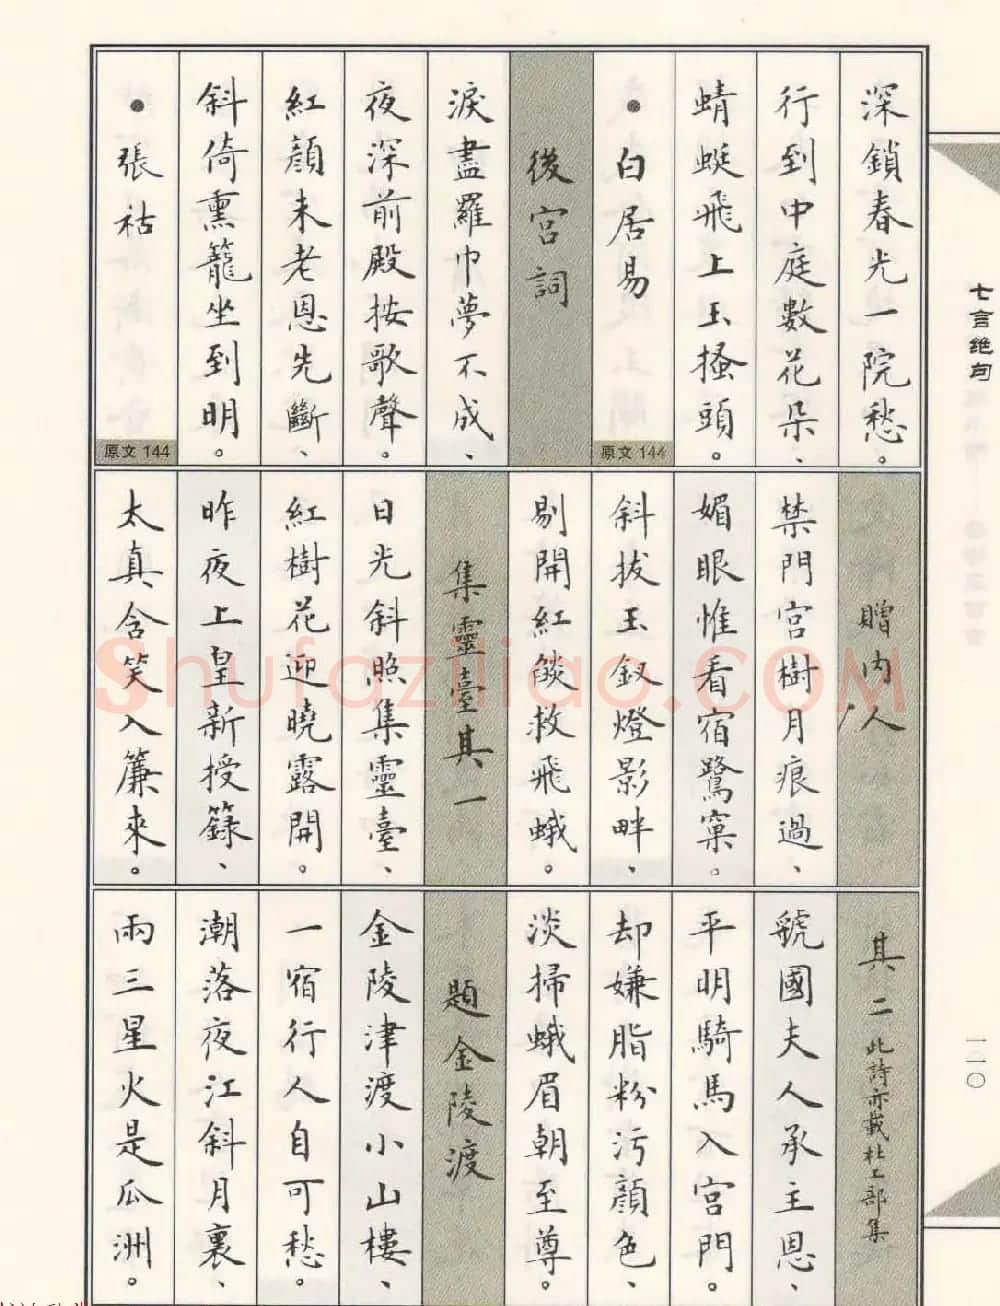 深鎖春光一院愁。
行到中庭數花朵、
蜻蜓飛上玉搔頭。
●白居易
原文 144
後宮詞
淚盡羅巾夢不成、
夜深前殿按歌聲。
紅顏未老恩先斷、
斜倚熏籠坐到明。
●張祜
原文 144
贈內人
禁門宮樹月痕過、
媚眼惟看宿鷺窠。
斜拔玉釵燈影畔、
剔開紅燄救飛蛾。
集靈臺其一
日光斜照集靈臺、
紅樹花迎曉露開。
昨夜上皇新授籙、
太真含笑入簾來。
其二 此詩亦載杜工部集
虢國夫人承主恩、
平明騎馬入宮門。
却嫌脂粉污顏色、
淡掃蛾眉朝至尊。
題金陵渡
金陵津渡小山樓、
一宿行人自可愁。
潮落夜江斜月裏、
兩三星火是瓜洲。
七言绝句
一一〇
Shufaziliao.COM